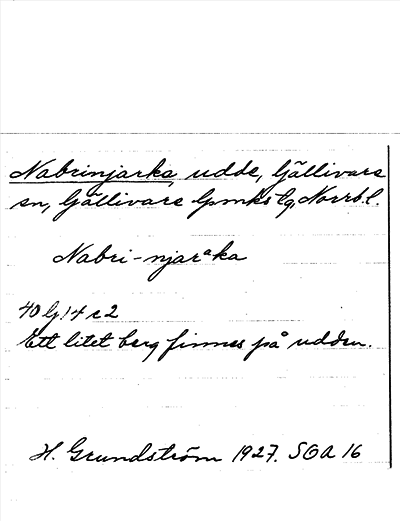 Nabrinjarka, udde, Gällivare
sn, Gällivare lpmks tg, Norrb. l.
Nabri-njarᵃka
40 G:4 c 2
Ett litet berg finnes på udden.
H. Grundström 1927. SOA 16